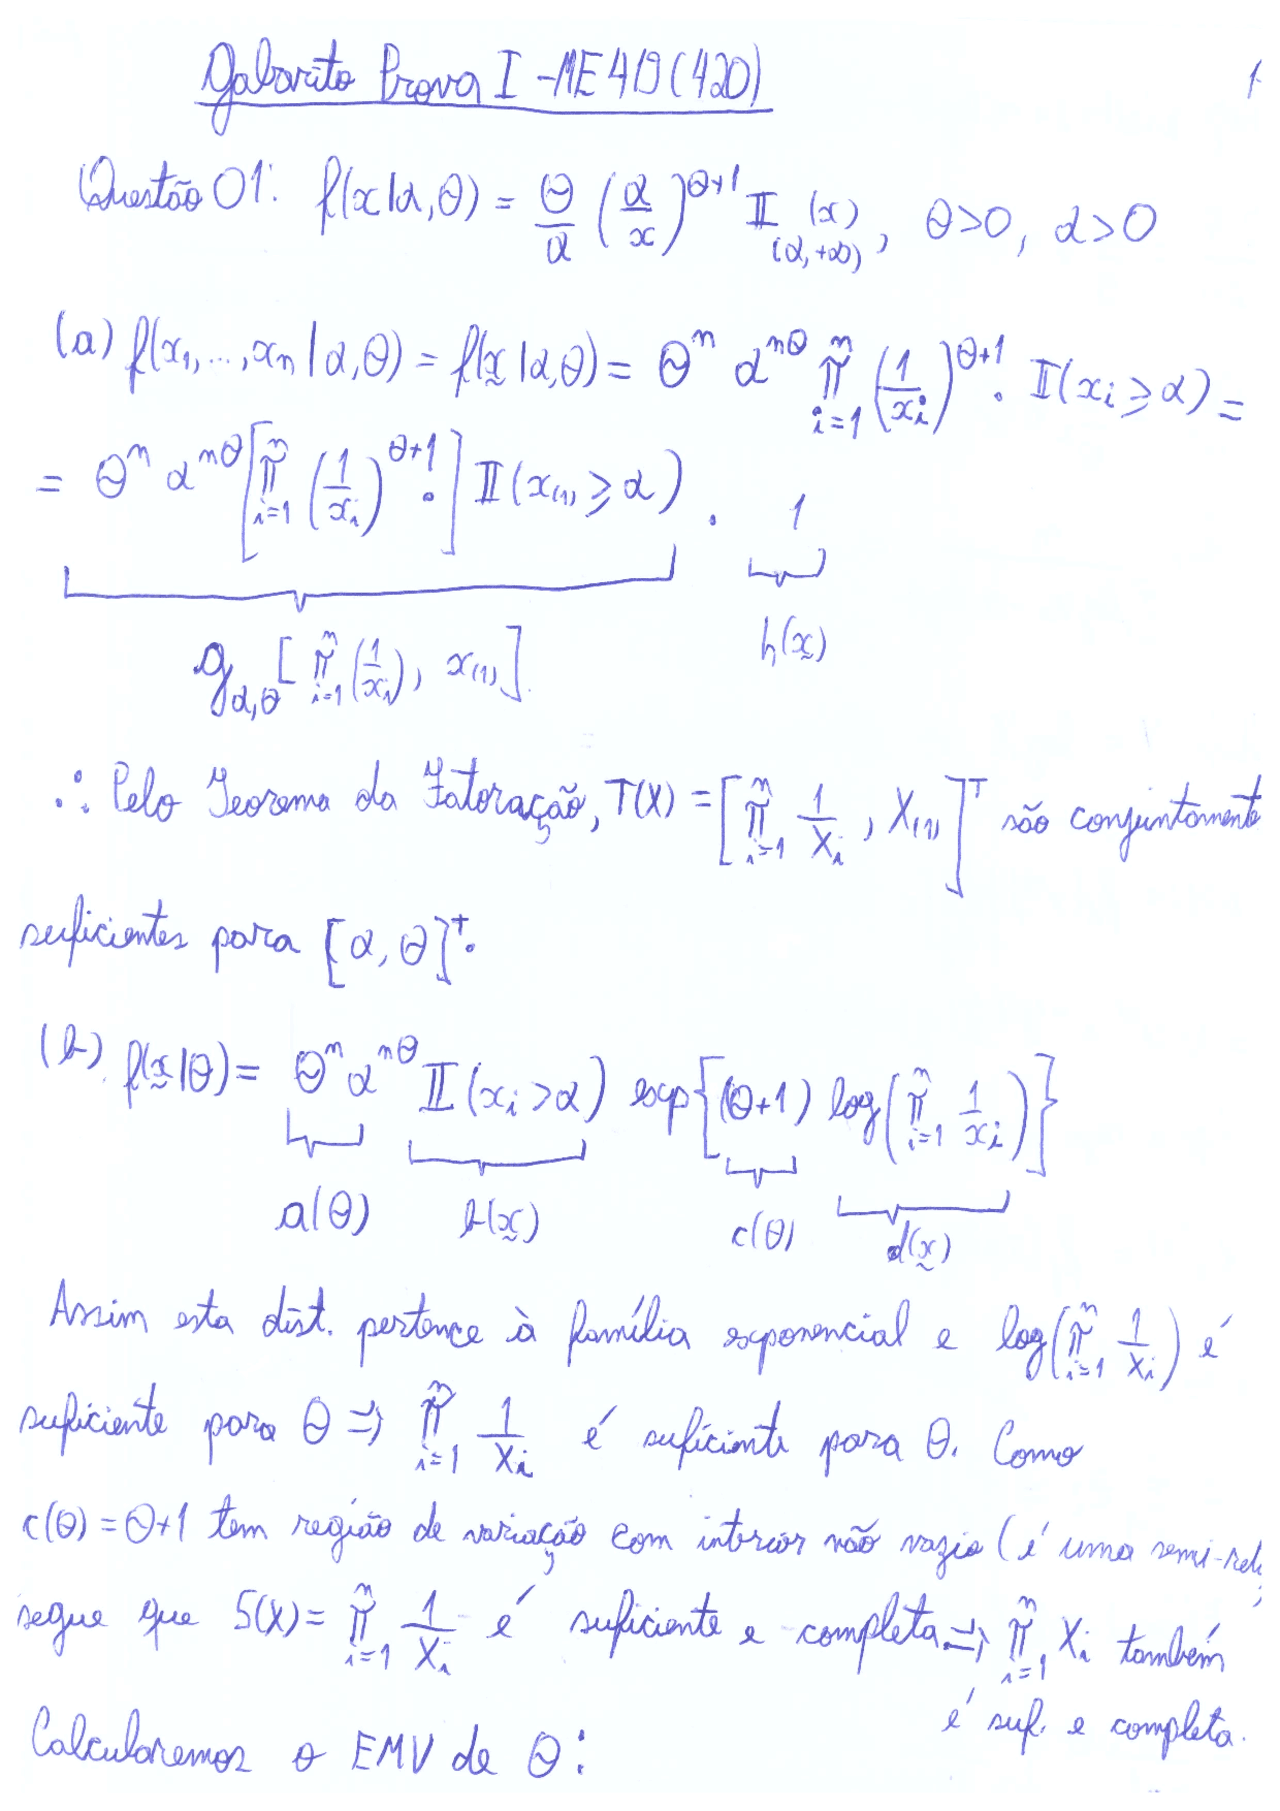 Gabarito Prova I - ME 419 (420)
1
Questão 01: f(x|α,θ) = θ/α (α/x)^{θ+1} 𝕀_{(α,+∞)}(x), θ>0, α>0
(a) f(x₁,...,xₙ|α,θ) = f(x̰|α,θ) = θⁿ α^{nθ} ∏_{i=1}^{n} (1/xᵢ)^{θ+1}. 𝕀(xᵢ ≥ α) =
= θⁿ α^{nθ} [∏_{i=1}^{n} (1/xᵢ)^{θ+1}.] 𝕀(x₍₁₎ ≥ α) . 1
g_{α,θ}[∏_{i=1}^{n} (1/xᵢ), x₍₁₎] h(x̰)
∴ Pelo Teorema da Fatoração, T(X) = [∏_{i=1}^{n} 1/Xᵢ, X₍₁₎]^T são conjuntamente
suficientes para [α, θ]^T.
(b) f(x̰|θ) = θⁿ α^{nθ} 𝕀(xᵢ > α) exp{(θ+1) log(∏_{i=1}^{n} 1/xᵢ)}
a(θ) b(x̰) c(θ) d(x̰)
Assim esta dist. pertence à família exponencial e log(∏_{i=1}^{n} 1/Xᵢ) é
suficiente para θ ⇒ ∏_{i=1}^{n} 1/Xᵢ é suficiente para θ. Como
c(θ) = θ+1 tem região de variação com interior não vazio (é uma semi-reta,
segue que S(X) = ∏_{i=1}^{n} 1/Xᵢ é suficiente e completa. ⇒ ∏_{i=1}^{n} Xᵢ também
é suf. e completa.
Calcularemos o EMV de θ: